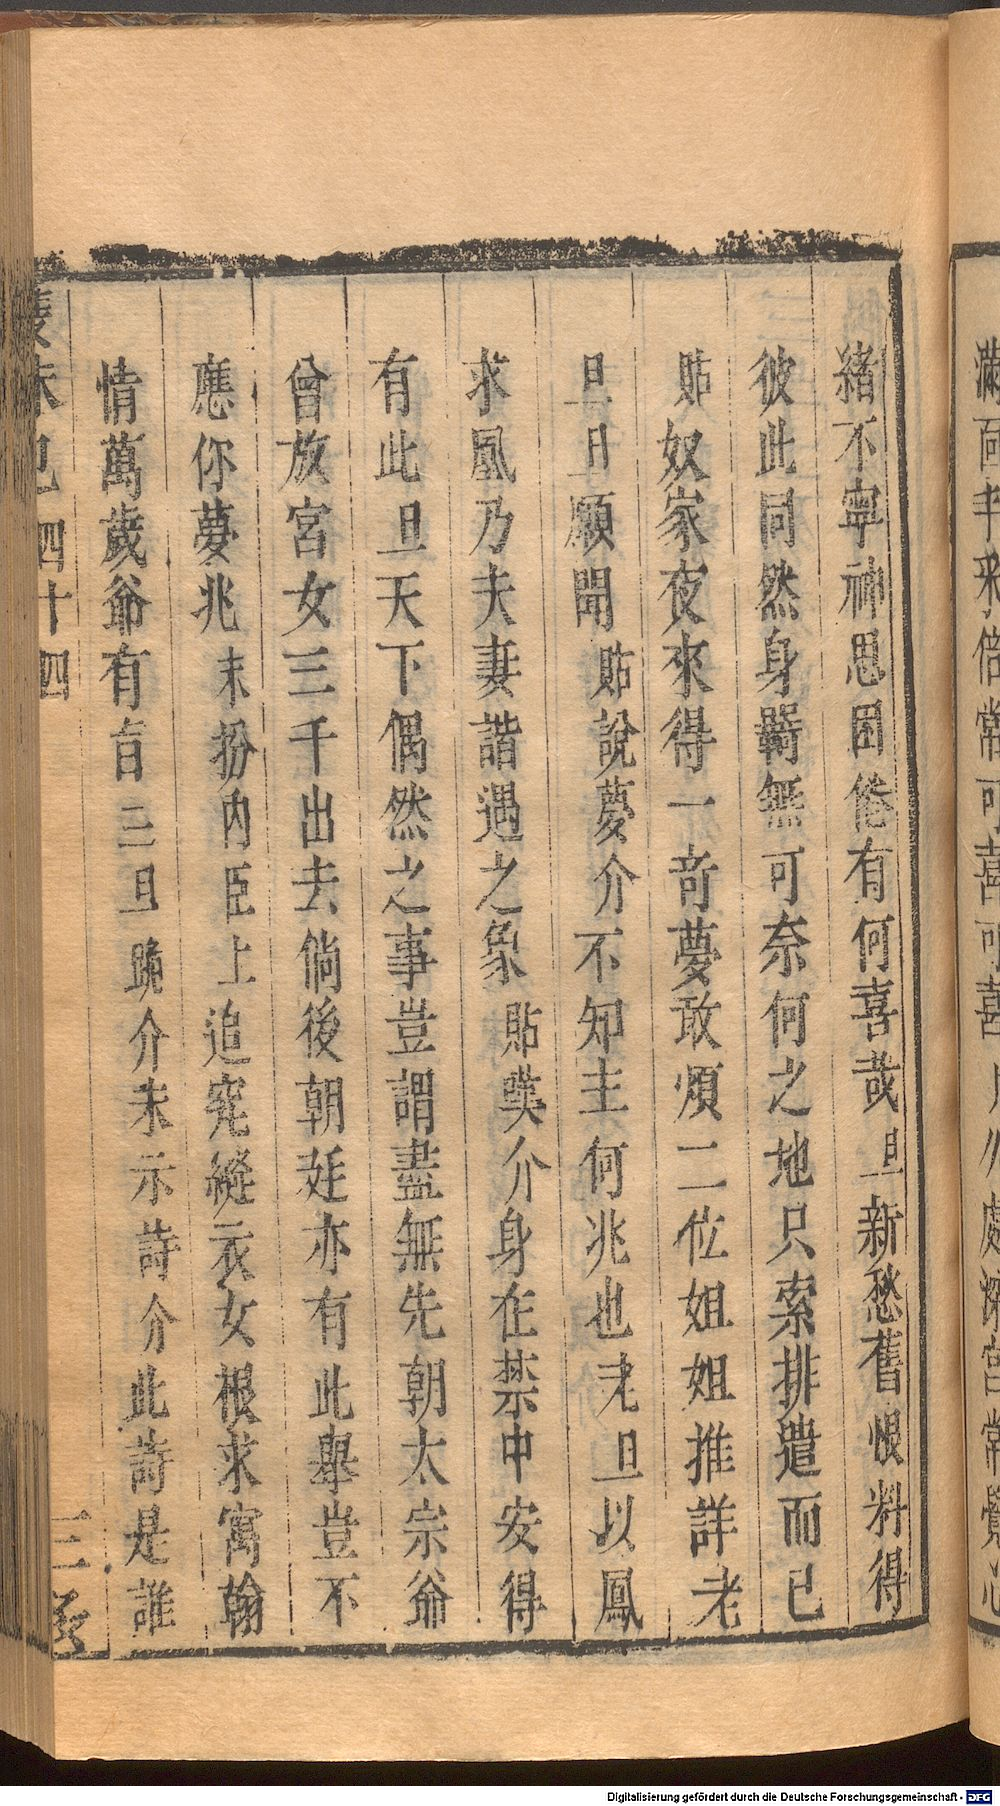 滿面半來倍常可喜可喜　　處深宮常覺心
緒不寧神思困倦有何喜哉旦新愁舊恨料得
彼此同然身羈無可奈何之地只索排遣而已
貼奴家夜來得一竒夢敢煩二位姐姐推詳老
旦旦願聞貼說夢介不知主何兆也老旦以鳳
求凰乃夫妻諧遇之象貼嘆介身在禁中安得
有此旦天下偶然之事豈謂盡無先朝太宗爺
曾放宮女三千出去倘後朝廷亦有此舉豈不
應你夢兆末扮内臣上追究縫衣女根求寓翰
情萬歲爺有旨三旦跪介末示詩介此詩是誰
四十四
Digitalisierung gefördert durch die Deutsche Forschungsgemeinschaft - DFG